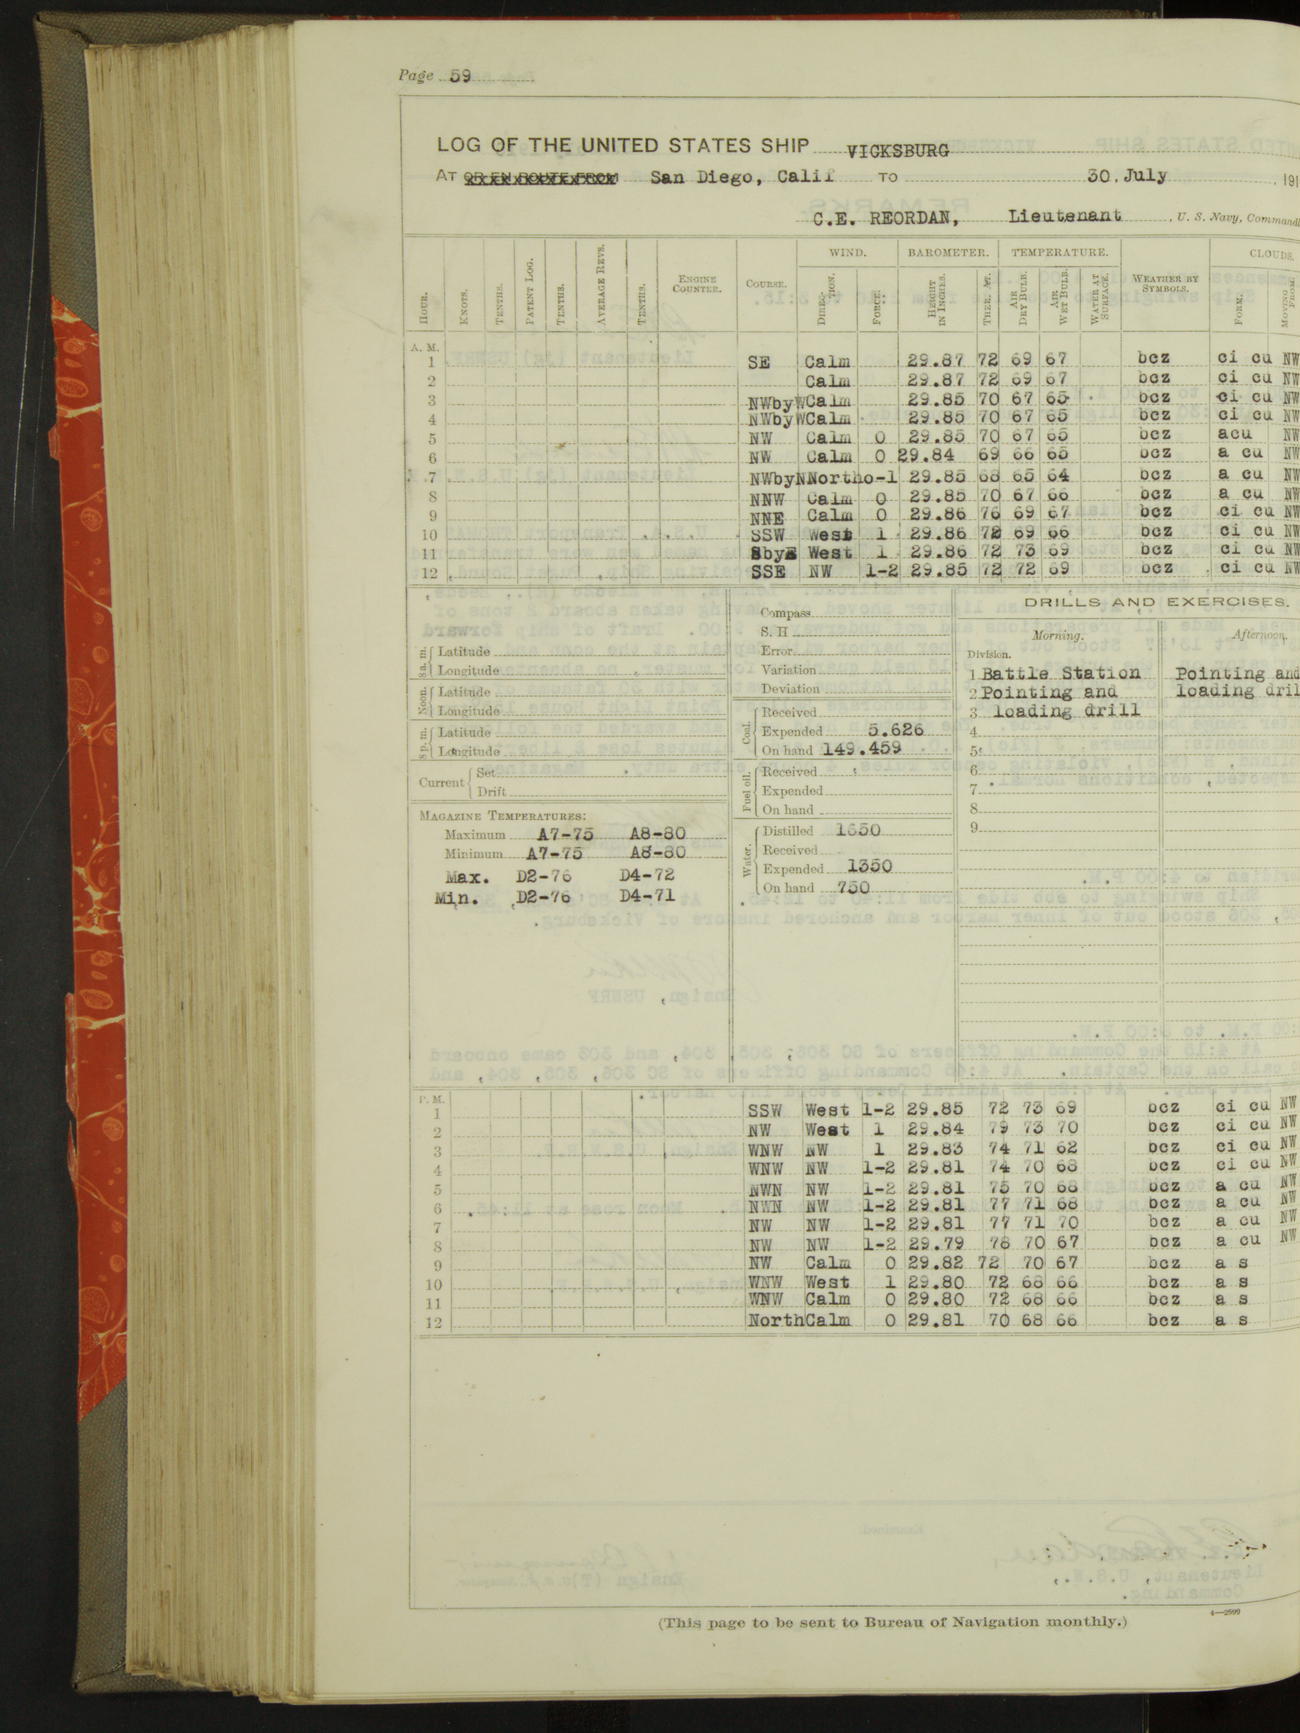 Page 59
LOG OF THE UNITED STATES SHIP VICKSBURG
AT OR EN ROUTE FROM San Diego, Calif TO 30 July , 191
C.E. REORDAN, Lieutenant , U. S. Navy, Commandi
WIND. BAROMETER. TEMPERATURE. CLOUDS.
HOUR. KNOTS. TENTHS. PATENT LOG. TENTHS. AVERAGE REVS. TENTHS. ENGINE COUNTER. COURSE. DIREC- TION. FORCE. HEIGHT IN INCHES. THER. AT. AIR DRY BULB. AIR WET BULB. WATER AT SURFACE. WEATHER BY SYMBOLS. FORM. MOVING FROM.
A. M.
1 SE Calm 29.87 72 69 67 bcz ci cu NW
2 Calm 29.87 72 69 67 bcz ci cu NW
3 NWbyW Calm 29.85 70 67 65 bcz ci cu NW
4 NWbyW Calm 29.85 70 67 65 bcz ci cu NW
5 NW Calm 0 29.85 70 67 65 bcz acu NW
6 NW Calm 0 29.84 69 66 65 bcz a cu NW
7 NWbyN North 0-1 29.85 68 65 64 bcz a cu NW
8 NNW Calm 0 29.85 70 67 66 bcz a cu NW
9 NNE Calm 0 29.86 76 69 67 bcz ci cu NW
10 SSW West 1 29.86 72 69 66 bcz ci cu NW
11 SbyE West 1 29.86 72 73 69 bcz ci cu NW
12 SSE NW 1-2 29.85 72 72 69 bcz ci cu NW
8 a. m. Latitude
Longitude
Noon. Latitude
Longitude
8 p. m. Latitude
Longitude
Current Set
Drift
MAGAZINE TEMPERATURES:
Maximum A7-75 A8-80
Minimum A7-75 A8-80
Max. D2-76 D4-72
Min. D2-76 D4-71
Compass
S. H
Error
Variation
Deviation
Coal. Received
Expended 5.626
On hand 149.459
Fuel oil. Received
Expended
On hand
Water. Distilled 1650
Received
Expended 1350
On hand 750
DRILLS AND EXERCISES.
Morning. Afternoon.
Division.
1 Battle Station Pointing and
2 Pointing and loading dril
3 loading drill
4
5
6
7
8
9
P. M.
1 SSW West 1-2 29.85 72 73 69 bcz ci cu NW
2 NW West 1 29.84 79 73 70 bcz ci cu NW
3 WNW NW 1 29.83 74 71 62 bcz ci cu NW
4 WNW NW 1-2 29.81 74 70 68 bcz ci cu NW
5 NWN NW 1-2 29.81 75 70 68 bcz a cu NW
6 NWN NW 1-2 29.81 77 71 68 bcz a cu NW
7 NW NW 1-2 29.81 77 71 70 bcz a cu NW
8 NW NW 1-2 29.79 76 70 67 bcz a cu NW
9 NW Calm 0 29.82 72 70 67 bcz a s
10 WNW West 1 29.80 72 68 66 bcz a s
11 WNW Calm 0 29.80 72 68 66 bcz a s
12 North Calm 0 29.81 70 68 66 bcz a s
(This page to be sent to Bureau of Navigation monthly.)